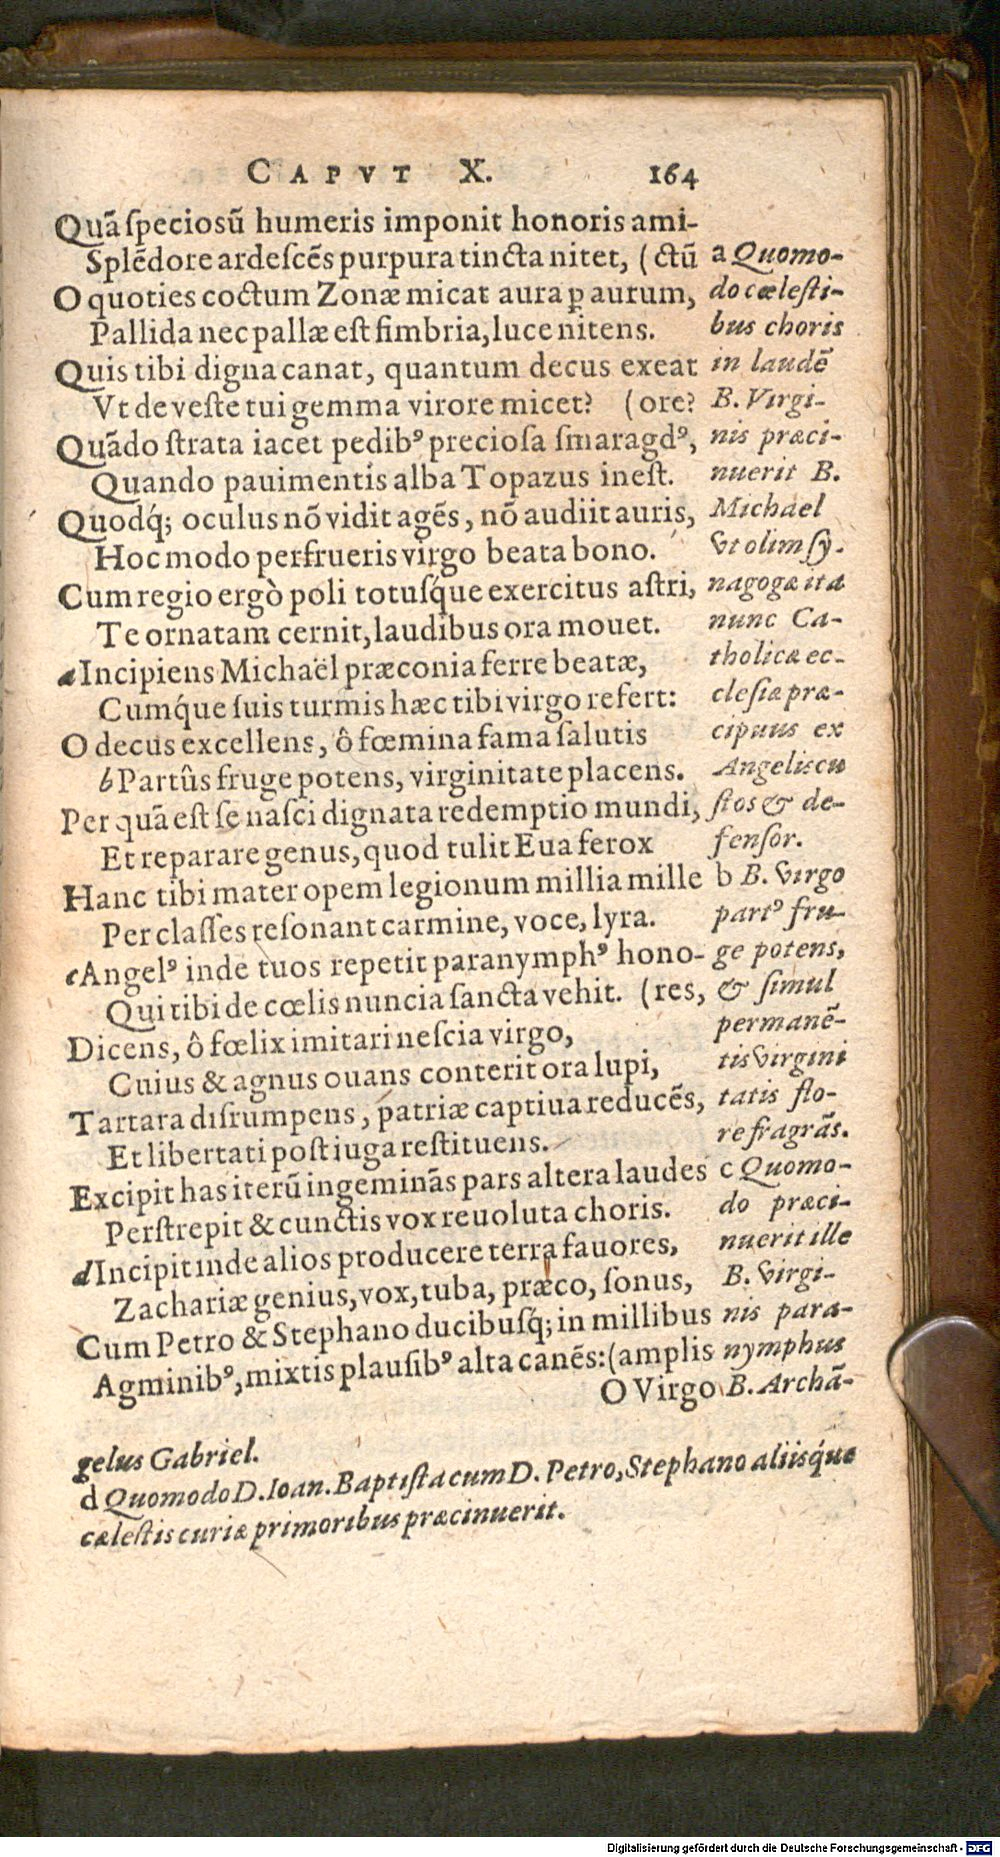 CAPVT X. 164
Quā speciosū humeris imponit honoris ami-
Splēdore ardescēs purpura tincta nitet, (ctū
O quoties coctum Zonæ micat aura ꝑ aurum,
Pallida nec pallæ est fimbria, luce nitens.
Quis tibi digna canat, quantum decus exeat
Vt de veste tui gemma virore micet? (ore?
Quādo strata iacet pedibꝰ preciosa smaragdꝰ,
Quando pauimentis alba Topazus inest.
Quodq́; oculus nō vidit agēs, nō audiit auris,
Hoc modo perfrueris virgo beata bono.
Cum regio ergò poli totusq́ue exercitus astri,
Te ornatam cernit, laudibus ora mouet.
a Incipiens Michaël præconia ferre beatæ,
Cumq́ue suis turmis hæc tibi virgo refert:
O decus excellens, ô fœmina fama salutis
b Partûs fruge potens, virginitate placens.
Per quā est se nasci dignata redemptio mundi,
Et reparare genus, quod tulit Eua ferox
Hanc tibi mater opem legionum millia mille
Per classes resonant carmine, voce, lyra.
c Angelꝰ inde tuos repetit paranymphꝰ hono-
Qui tibi de cœlis nuncia sancta vehit. (res,
Dicens, ô fœlix imitari nescia virgo,
Cuius & agnus ouans conterit ora lupi,
Tartara disrumpens, patriæ captiua reducēs,
Et libertati post iuga restituens.
Excipit has iterū ingeminās pars altera laudes
Perstrepit & cunctis vox reuoluta choris.
d Incipit inde alios producere terra fauores,
Zachariæ genius, vox, tuba, præco, sonus,
Cum Petro & Stephano ducibusq́; in millibus
Agminibꝰ, mixtis plausibꝰ alta canēs: (amplis
O Virgo
a Quomo-
do cælesti-
bus choris
in laudē
B. Virgi-
nis præci-
nuerit B.
Michael
vt olim sy-
nagogæ ita
nunc Ca-
tholicæ ec-
clesiæ præ-
cipuus ex
Angelis cu
stos & de-
fensor.
b B. Virgo
partꝰ fru-
ge potens,
& simul
permanē-
tis virgini
tatis flo-
re fragrās.
c Quomo-
do præci-
nuerit ille
B. Virgi-
nis para-
nymphus
B. Archā-
gelus Gabriel.
d Quomodo D. Ioan. Baptista cum D. Petro, Stephano aliisq́ue
cælestis curiæ primoribus præcinuerit.
Digitalisierung gefördert durch die Deutsche Forschungsgemeinschaft - DFG